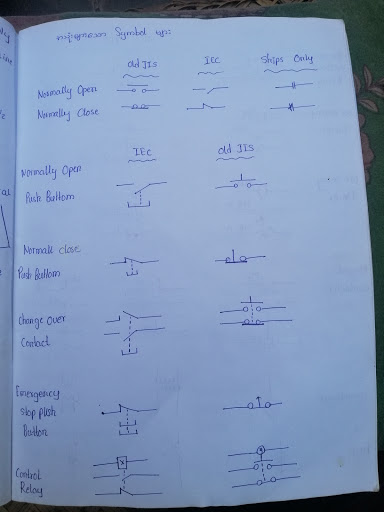 Symbol
old JIS IEC Ships Only
Normally Open
Normally Close
IEC old JIS
Normally Open
Push Buttom
Normall close
Push Buttom
Change Over
Contact
Emergency
stop push
Button
Control
Relay
X X